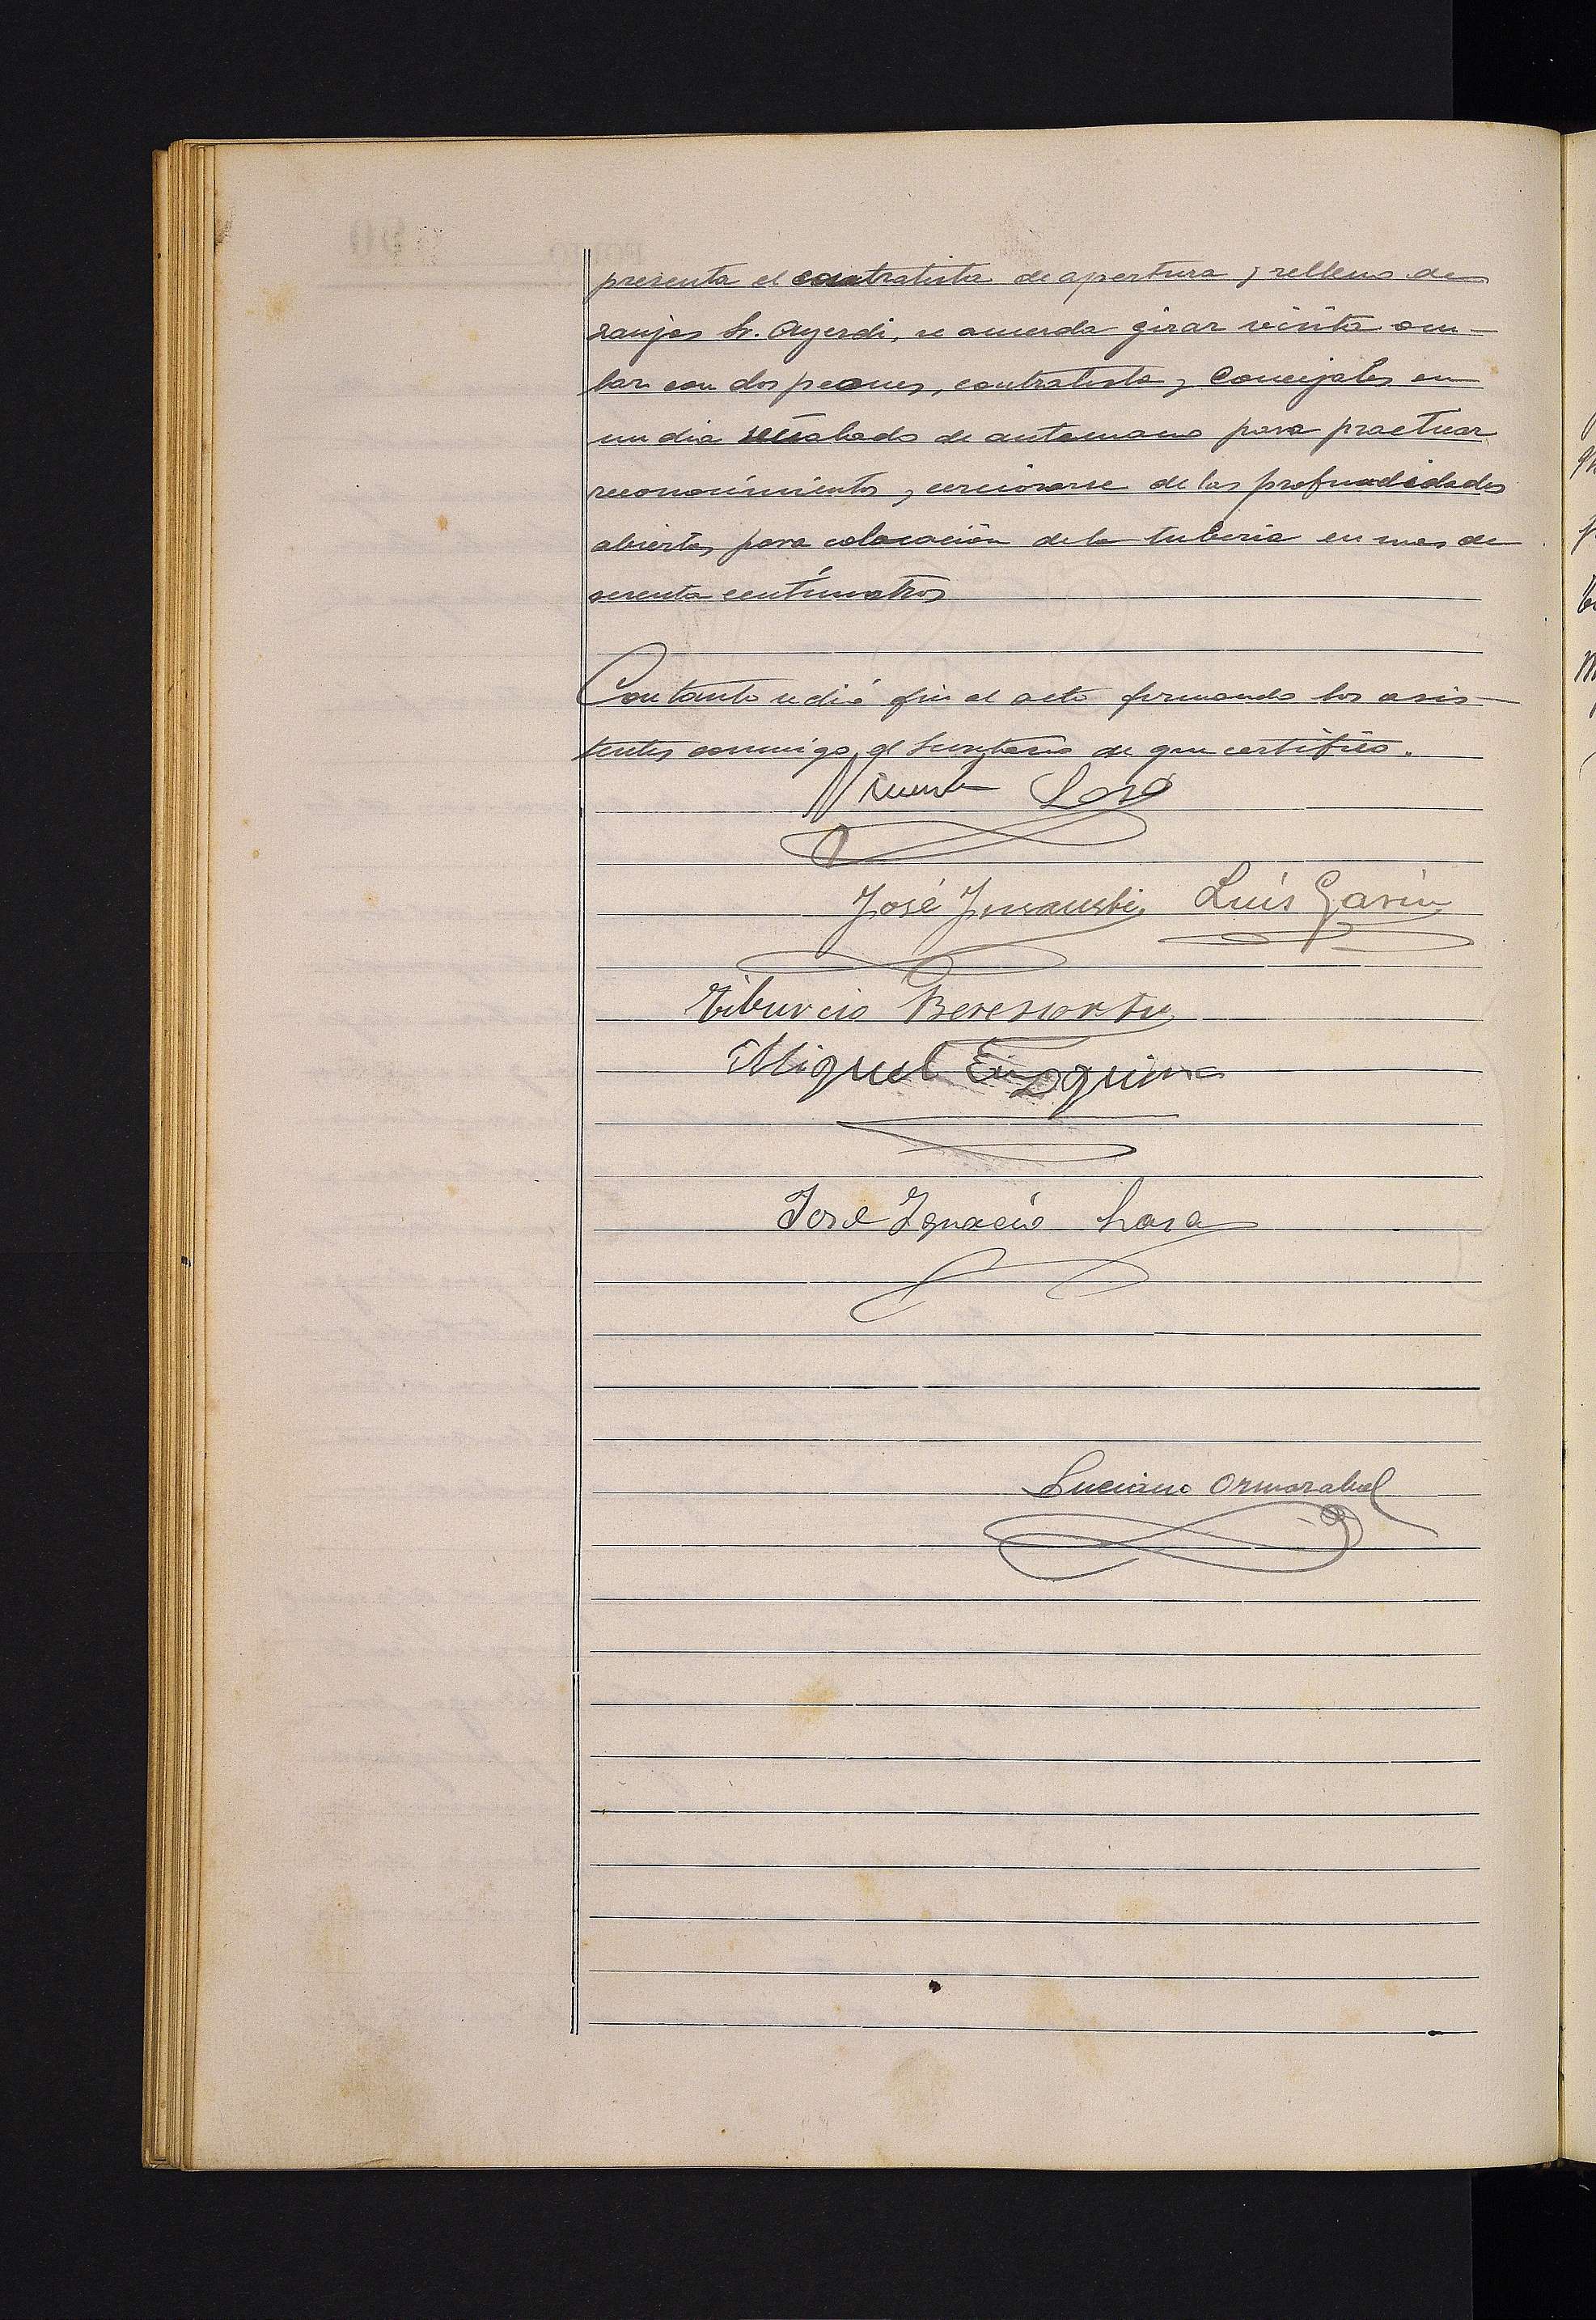 presenta el contratista de apertura y relleno de
zanjas Sr. Ayerdi, se acuerda girar visita ocu-
lar con dos peones, contratista y Concejales en
un dia señalado de antemano para practicar
reconocimientos y cerciorarse de las profundidades
abiertas para colocación de la tuberia en mas de
sesenta centímetros
Con tanto se dió fin al acto firmando los asis-
tentes conmigo el Secretario de que certifico.
Vicente Lasa
José Luis Garin
Tiburcio Beresiartu
Miguel Eizaguirre
José Ignacio Lasa
Luciano Ormazabal